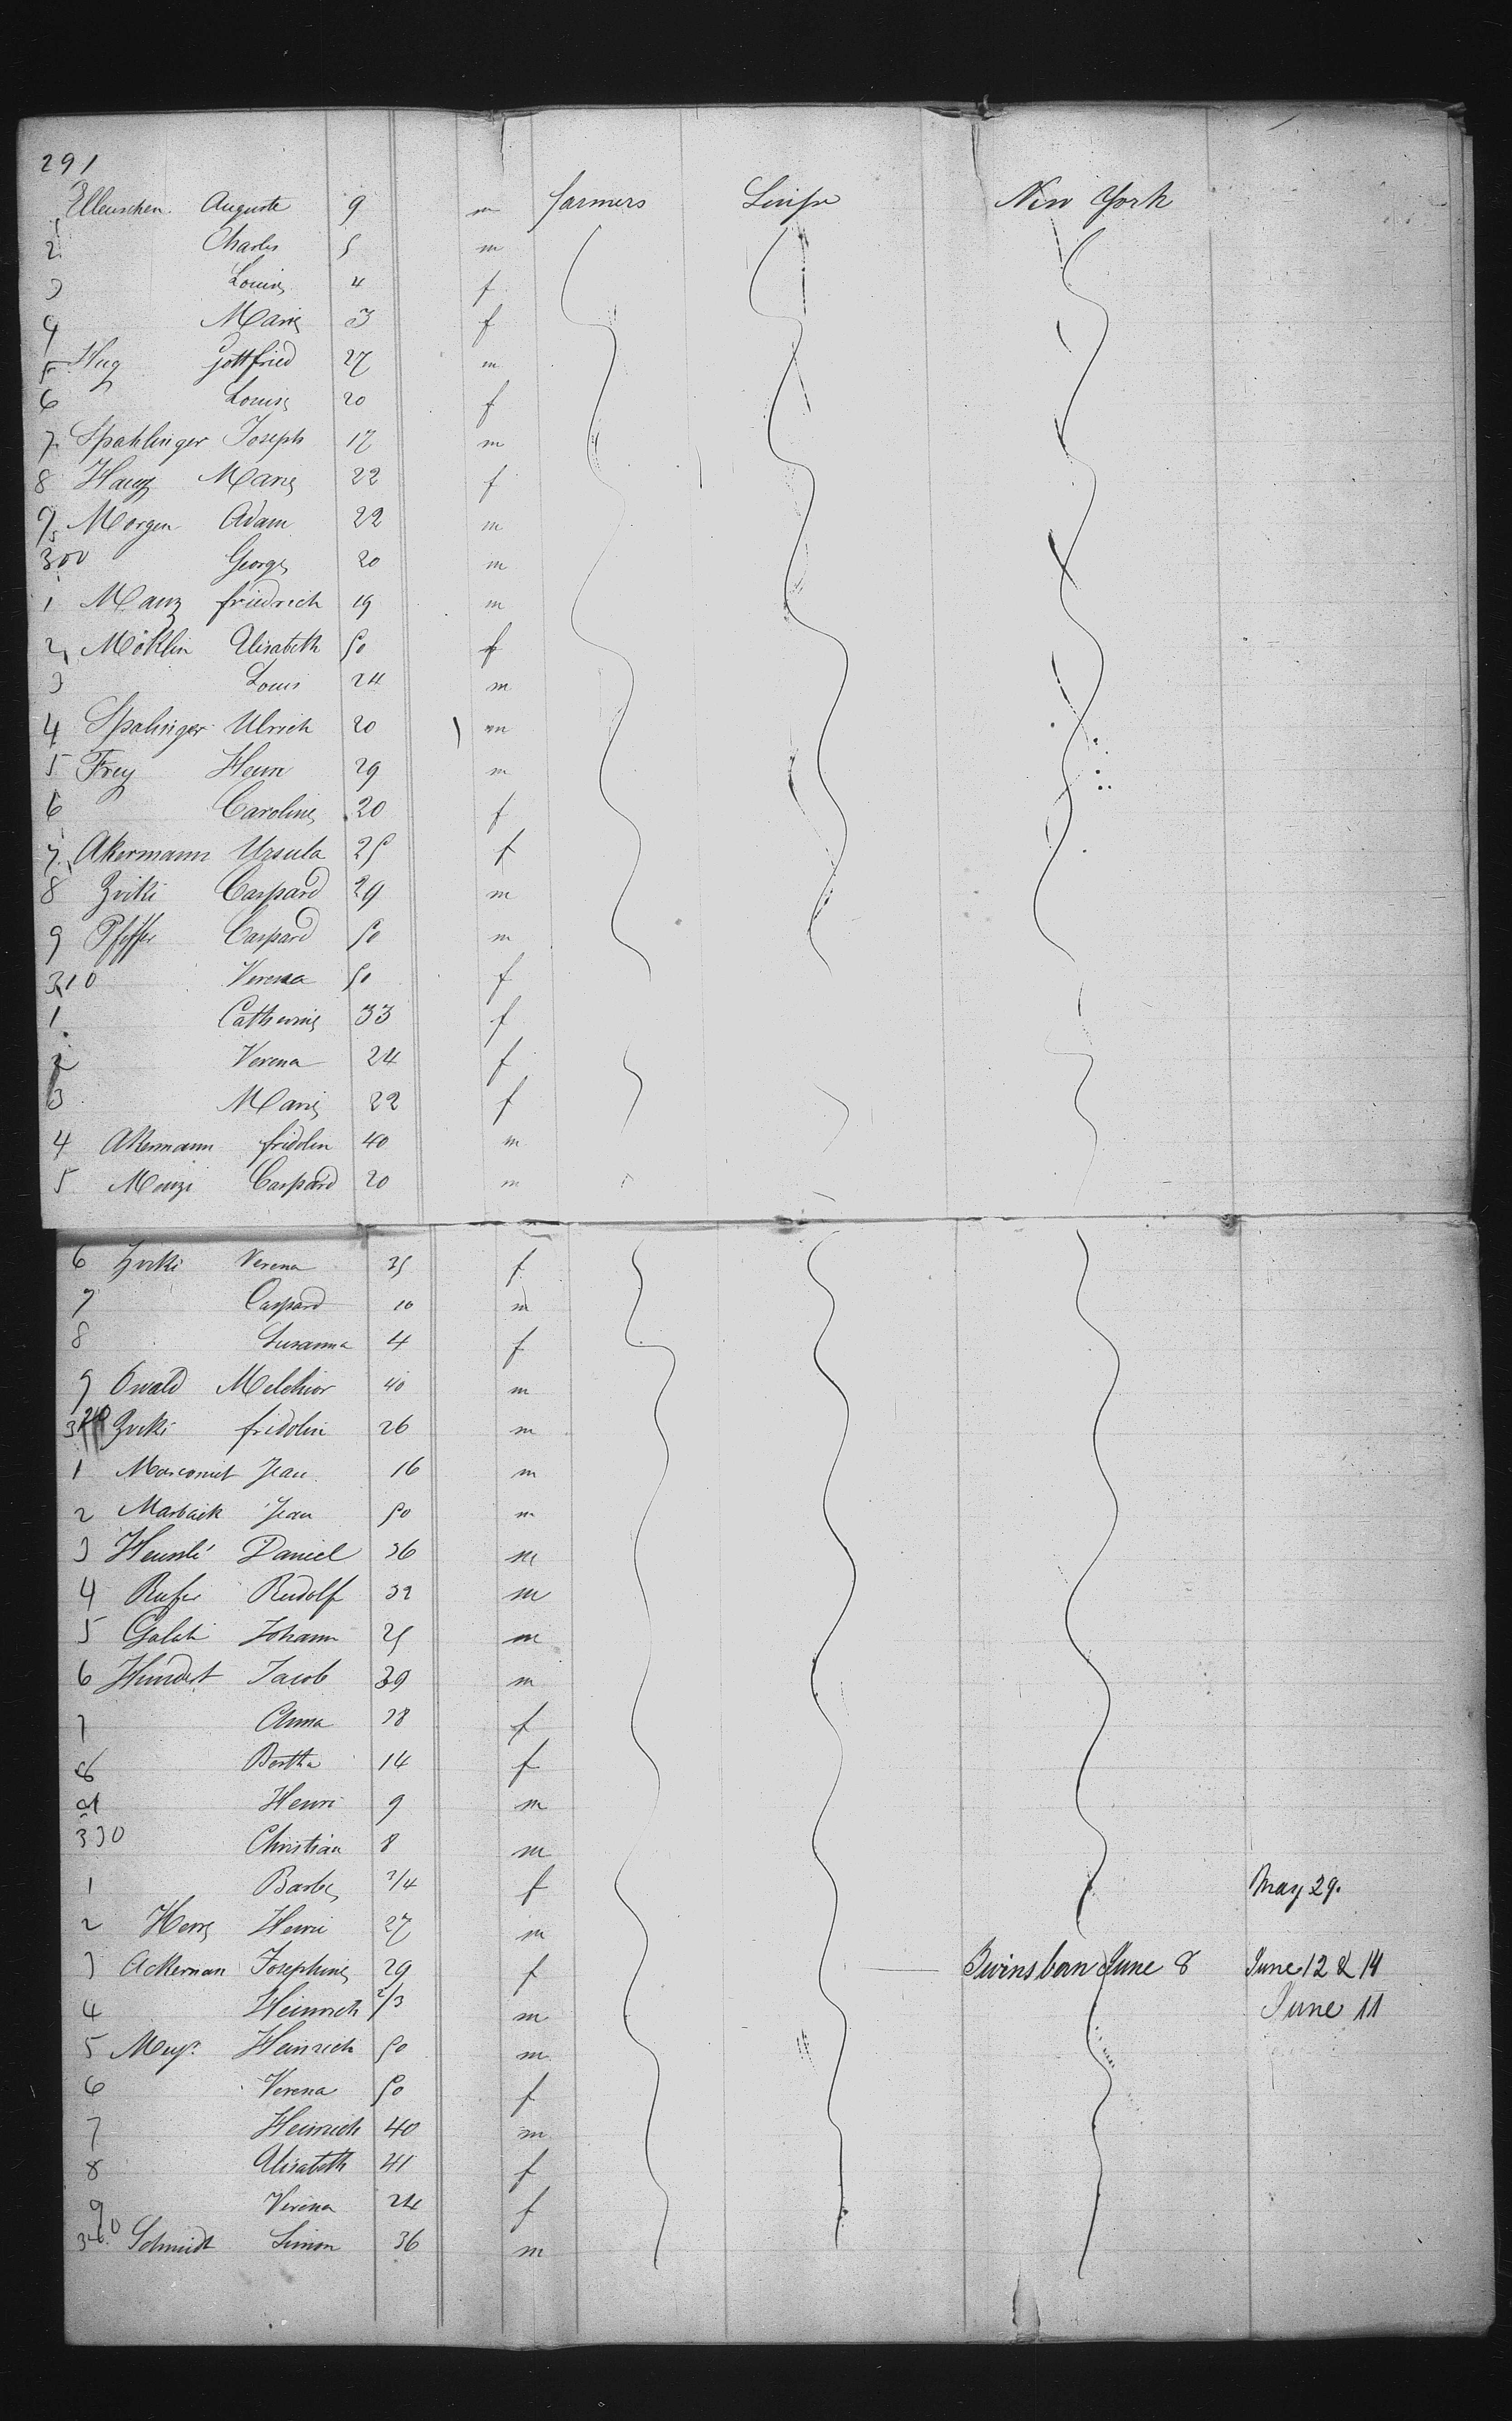 291
Elleuschen Auguste 9 m farmers Suisse New York
2 Charles 5 m
3 Louise 4 f
4 Marie 3 f
5 Hug Gottfried 27 m
6 Louise 20 f
7 Spahlinger Joseph 17 m
8 Haug Marie 22 f
9 Morgen Adam 22 m
300 George 20 m
1 Manz friedrich 19 m
2 Möklin Elisabeth 50 f
3 Louis 24 m
4 Spalinger Ulrich 20 m
5 Frey Henri 29 m
6 Caroline 20 f
7 Akermann Ursula 25 f
8 Zviki Caspard 29 m
9 Pfiffer Caspard 50 m
310 Verena 50 f
1 Catherine 33 f
2 Verena 24 f
3 Marie 22 f
4 Akermann fridolin 40 m
5 Menzi Caspard 20 m
6 Zviki Verena 35 f
7 Caspard 10 m
8 Susanna 4 f
9 Oswald Melchior 40 m
320 Zviki fridolin 26 m
1 Jean 16 m
2 Marback Jean 50 m
3 Daniel 36 m
4 Rufer Rudolf 32 m
5 Galati Johann 25 m
6 Jacob 39 m
7 Anna 38 f
8 Bertha 14 f
9 Henri 9 m
330 Christian 8 m
1 Barbe 3/4 f May 29.
2 Herre Henri 27 m
3 Ackerman Josephine 29 f Twins born June 8 June 12 & 14
4 Heinrich 2/3 m June 11
5 Meyr Heinrich 50 m
6 Verena 50 f
7 Heinrich 40 m
8 Elisabeth 41 f
9 Verena 24 f
340 Schmidt Simon 36 m